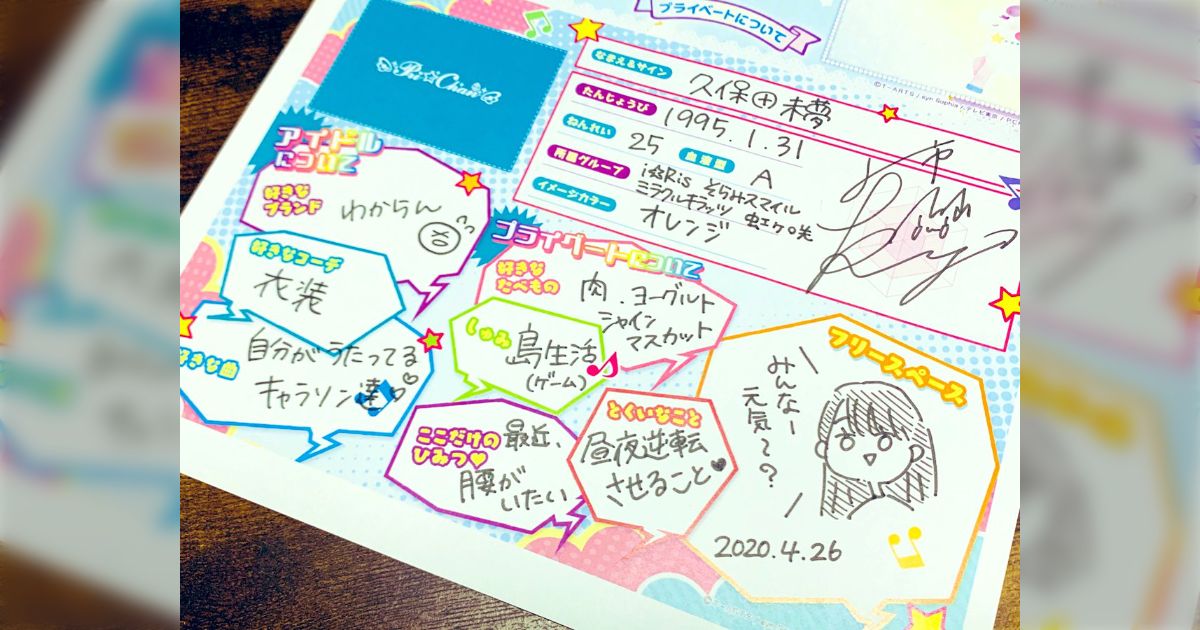 プライベートについて
Pri☆Chan
なまえ&サイン
久保田 未夢
たんじょうび
1995.1.31
ねんれい
25
血液型
A
所属グループ
i☆Ris そらみスマイル
ミラクルキラッツ 虹ヶ咲
イメージカラー
オレンジ
アイドル
について
好きな
ブランド
わからん
好きなコーデ
衣装
好きな曲
自分がうたってる
キャラソン達♡
プライベートについて
好きな
たべもの
肉、ヨーグルト
シャイン
マスカット
しゅみ
島生活
(ゲーム)
ここだけの
ひみつ♥
最近、
腰が
いたい
とくいなこと
昼夜逆転
させること♥
フリースペース
みんなー
元気〜?
2020.4.26